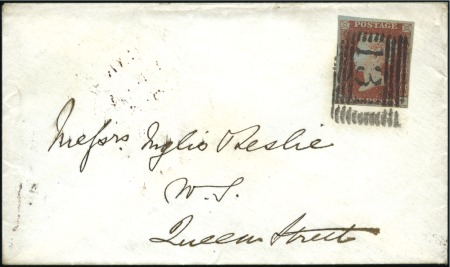 POSTAGE
131
Messrs. Inglis & Leslie
W. S.
Queen Street